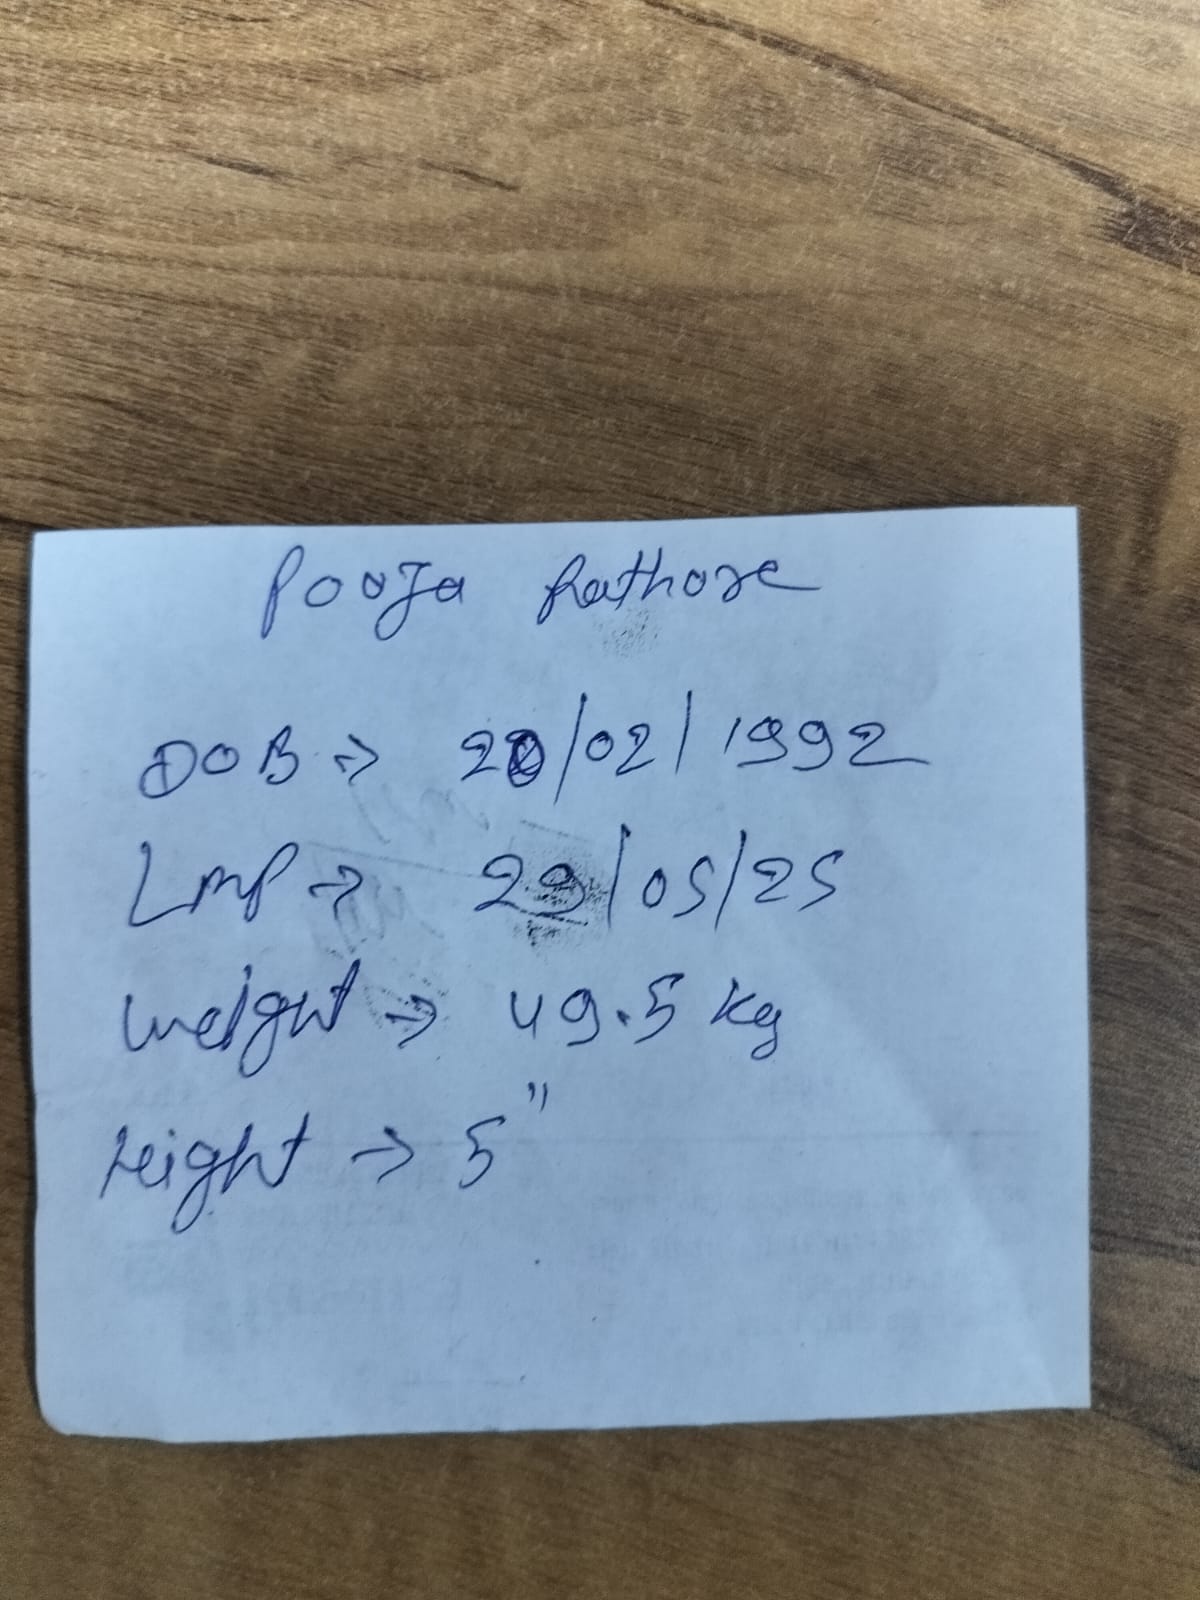 Pooja Rathore
DOB → 20/02/1992
LMP → 29/05/25
Weight → 49.5 kg
Height → 5"